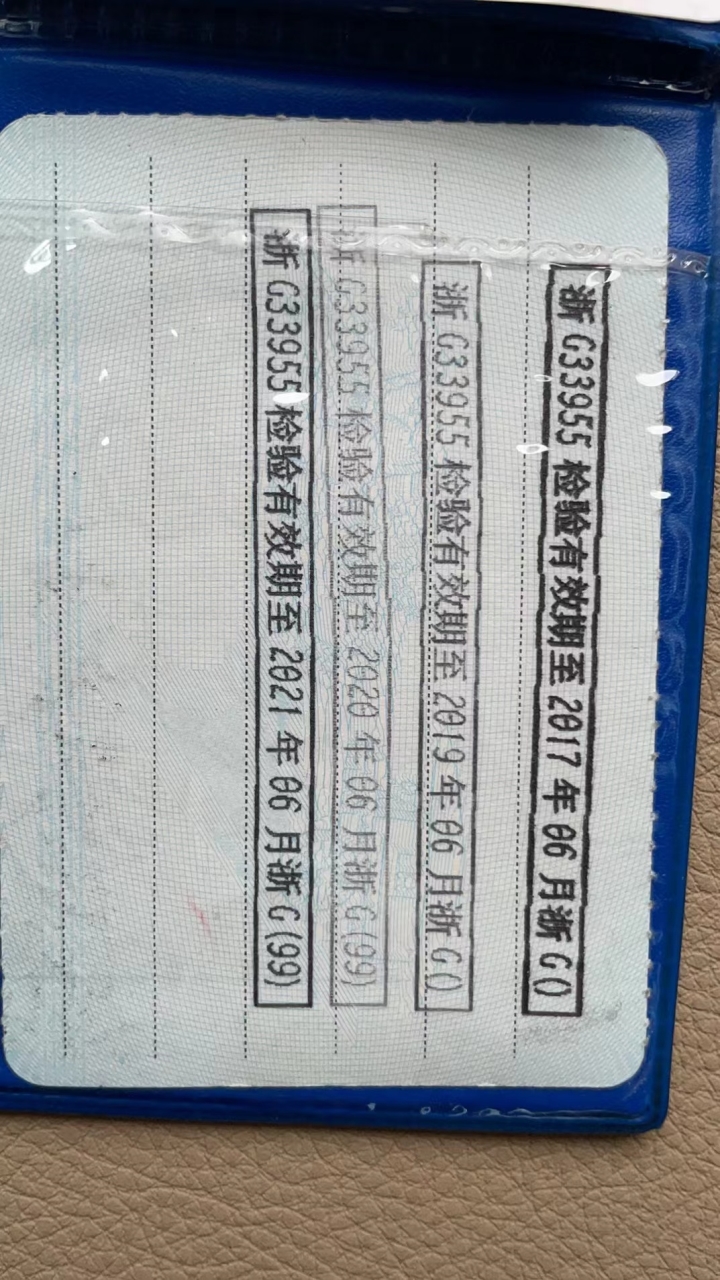 浙 G33955 检验有效期至 2017 年 06 月浙 G()
浙 G33955 检验有效期至 2019 年 06 月浙 G()
浙 G33955 检验有效期至 2020 年 06 月浙 G(99)
浙 G33955 检验有效期至 2021 年 06 月浙 G(99)